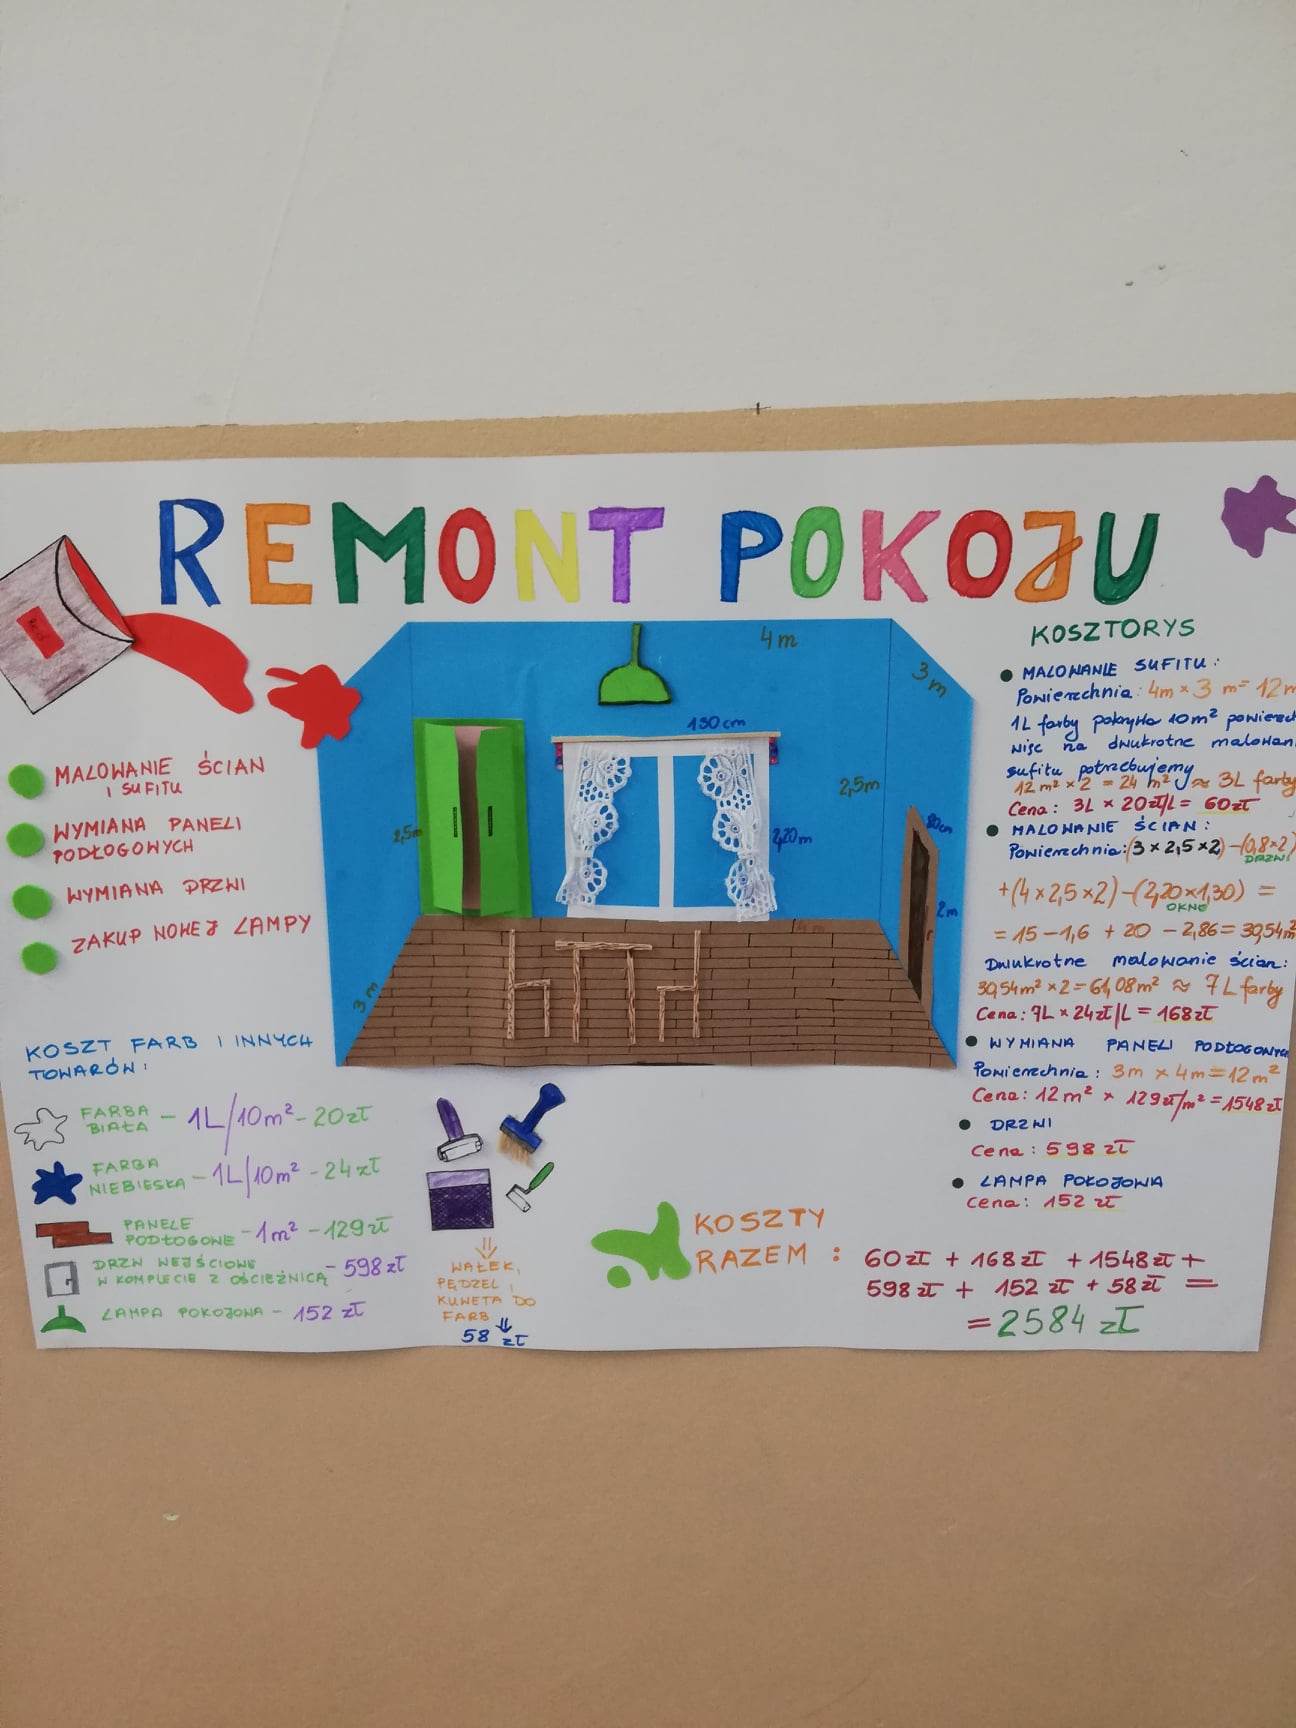 REMONT POKOJU
MALOWANIE ŚCIAN
I SUFITU
WYMIANA PANELI
PODŁOGOWYCH
WYMIANA DRZWI
ZAKUP NOWEJ LAMPY
KOSZT FARB I INNYCH
TOWARÓW:
FARBA
BIAŁA – 1L/10m² – 20 zł
FARBA
NIEBIESKA – 1L/10m² – 24 zł
PANELE
PODŁOGOWE – 1m² – 129 zł
DRZWI WEJŚCIOWE
W KOMPLECIE Z OŚCIEŻNICĄ – 598 zł
LAMPA POKOJOWA – 152 zł
4m
3m
130cm
2,5m
2,5m
2,20m
80cm
2m
4m
3m
WAŁEK,
PĘDZEL I
KUWETA DO
FARB
58 zł
KOSZTORYS
MALOWANIE SUFITU:
Powierzchnia: 4m × 3m = 12m
1L farby pokrywa 10m² powierzch
więc na dwukrotne malowan
sufitu potrzebujemy
12m² × 2 = 24 m² ≈ 3L farby
Cena: 3L × 20zł/L = 60zł
MALOWANIE ŚCIAN:
Powierzchnia: (3 × 2,5 × 2) – (0,8 × 2)
DRZWI
+ (4 × 2,5 × 2) – (2,20 × 1,30) =
OKNO
= 15 – 1,6 + 20 – 2,86 = 30,54m²
Dwukrotne malowanie ścian:
30,54m² × 2 = 61,08m² ≈ 7L farby
Cena: 7L × 24zł/L = 168zł
WYMIANA PANELI PODŁOGOWYCH
Powierzchnia: 3m × 4m = 12m²
Cena: 12m² × 129zł/m² = 1548zł
DRZWI
Cena: 598 zł
LAMPA POKOJOWA
Cena: 152 zł
KOSZTY
RAZEM: 60zł + 168zł + 1548zł +
598zł + 152 zł + 58zł =
= 2584 zł